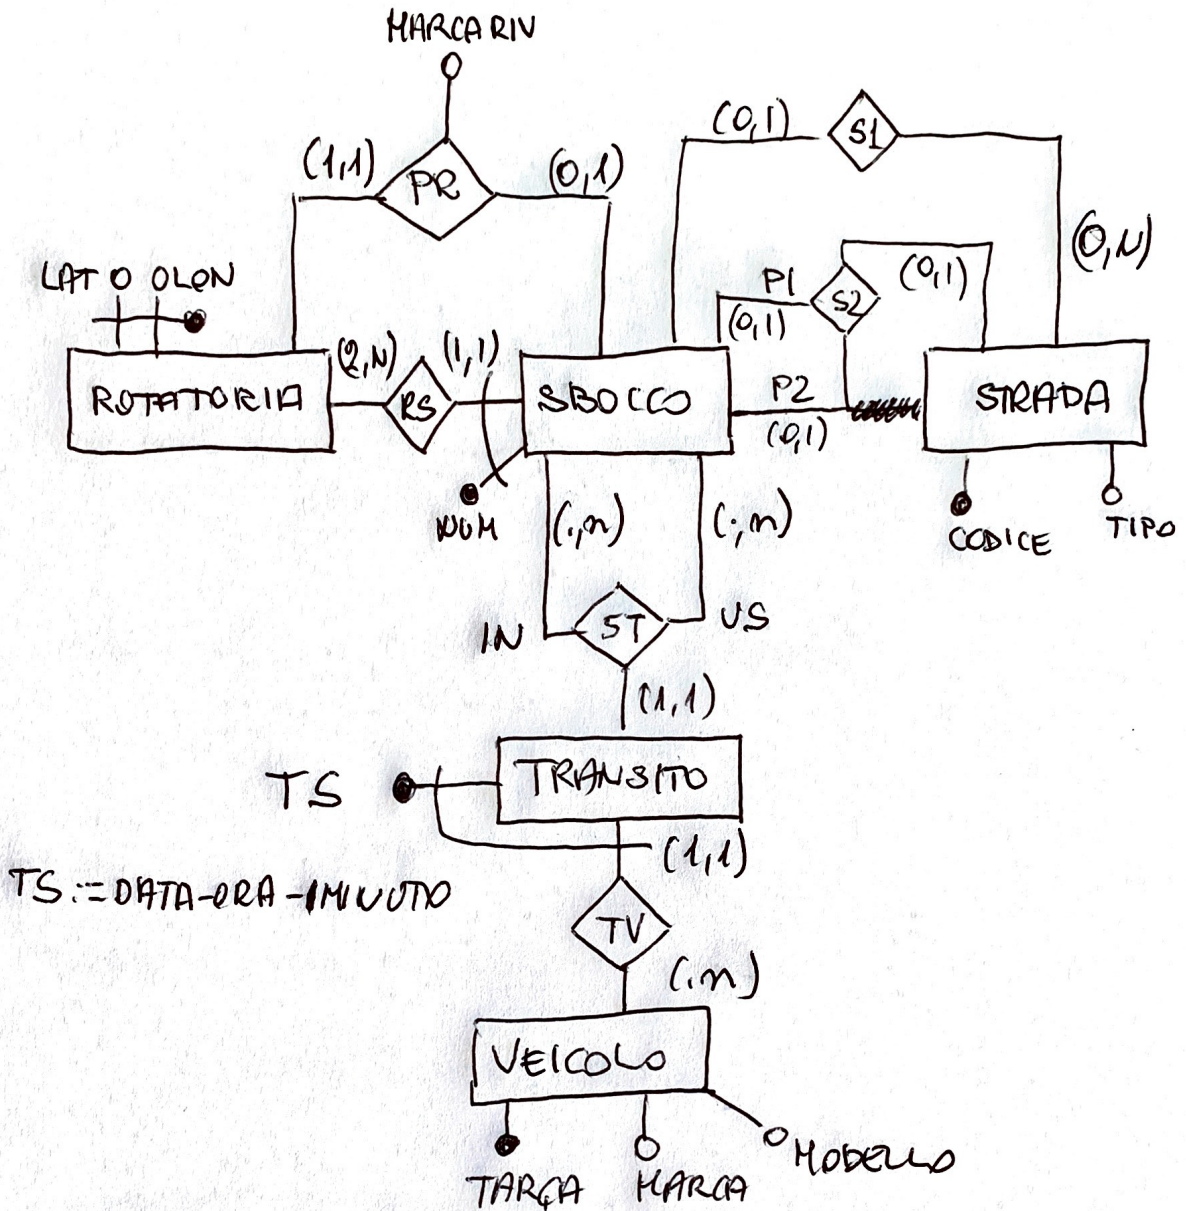 MARCARIV
(0,1)
S1
(1,1)
PR
(0,1)
(0,N)
LAT
LON
P1
S2
(0,1)
(0,1)
(2,N)
(1,1)
ROTATORIA
RS
SBOCCO
P2
STRADA
(0,1)
NUM
(.,n)
(.,n)
CODICE
TIPO
IN
ST
US
(1,1)
TS
TRANSITO
(1,1)
TS:=DATA-ORA-1MINUTO
TV
(.n)
VEICOLO
TARGA
MARCA
MODELLO